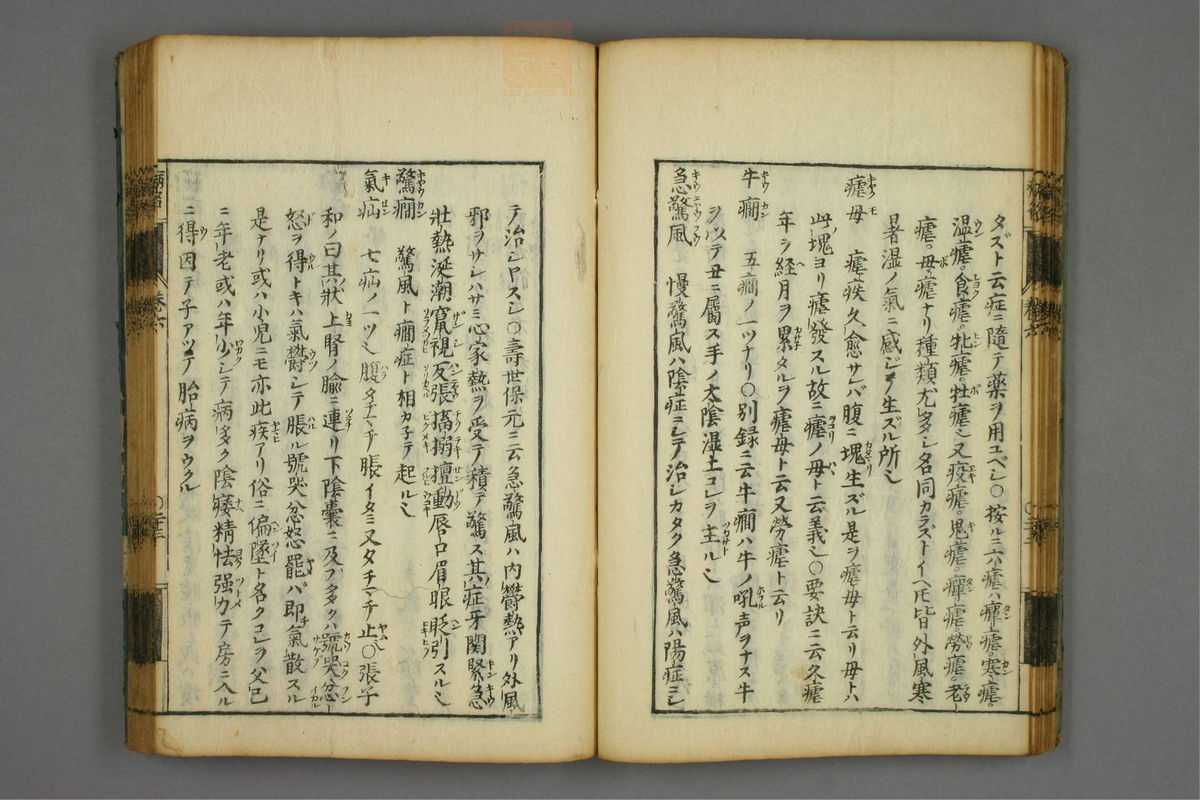 タズト云症ニ隨テ薬ヲ用ユベシ○按ルニ六瘧ハ癉瘧。寒瘧。
温瘧。食瘧。牝瘧。牡瘧ノ又疫瘧。鬼瘧。癉瘧勞瘧。老
瘧。母瘧ナリ種類尤多シ名同カラズトイヘ𪜈皆外風寒
暑湿ノ氣ニ感ジテ生ズル所ヒ
瘧母 瘧疾久愈サレバ腹ニ塊生ズル是ヲ瘧母ト云リ母トハ
此塊ヨリ瘧發スル故ニ瘧ノ母ト云義ヒ○要訣ニ云久瘧
年ヲ経月ヲ累タルヲ瘧母ト云又勞瘧ト云リ
牛癇 五癇ノ一ツナリ○別録ニ云牛癇ハ牛ノ吼声ヲナス牛
ヲ以テ丑ニ屬ス手ノ太陰湿土コレヲ主ルヒ
急驚風 慢驚風ハ陰症ニシテ治シカタク急驚風ハ陽症ニシ
テ治シヤスシ○壽世保元ニ云急驚風ハ内欝熱アリ外風
邪ヲサシハサミ心家熱ヲ受テ積テ驚ス其症牙関緊急
壮熱涎潮竄視反張搐搦擅動唇口眉眼眨引スルヒ
驚癇 驚風ト癇症ト相カ子テ起ルヒ
氣疝 七疝ノ一ツヒ腹タチマチ脹イタミ又タチマチ止ム○張子
和ノ曰其狀上腎ノ腧ニ連リ下陰嚢ニ及ブ多クハ號哭忿
怒ヲ得トキハ氣欝シテ脹ル號哭忿怒罷バ即氣散スル
是ナリ或ハ小児ニモ亦此疾アリ俗ニ偏墜ト名クコレヲ父已
ニ年老或ハ年少シテ病多ク陰痿精怯强カテ房ニ入ル
ニ得因テ子アツテ胎病ヲウクル